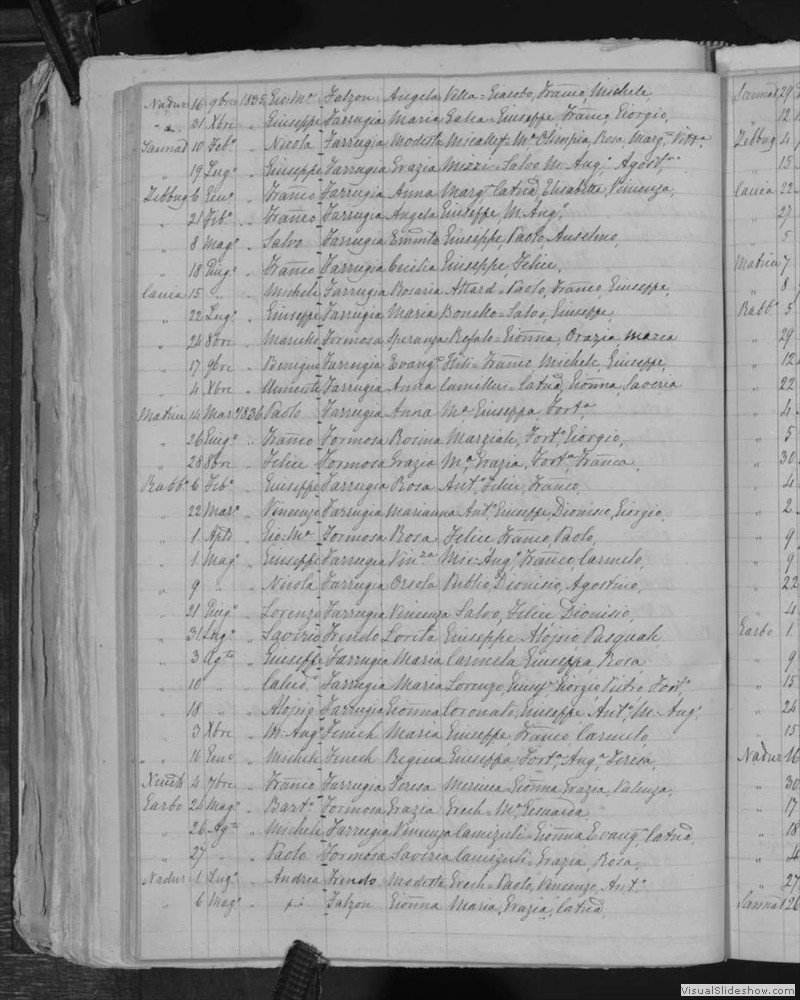 Nadur 16 9bre 1835 Gio: Ma Falzon Angela Vella = Giacobo, Franco, Michele,
" 31 Xbre " Giuseppe Farrugia Maria Galea = Giuseppe, Franco, Giorgio,
Sannad 10 Feb° " Nicola Farrugia Modesta Micallef = Ma Olimpia, Rosa, Marg.
" 19 Lug° " Giuseppe Farrugia Grazia Mizzi = Salvo, M. Ang°, Agost
Zebbug 6 Gen° " Franco Farrugia Anna Marg. Catna, Elisabetta, Vincenza,
" 21 Feb° " Franco Farrugia Angela Giuseppe, M. Ang°,
" 8 Mag° " Salvo Farrugia Giuseppe, Paolo, Anselmo,
" 18 Giug° " Franco Farrugia Cecilia Giuseppe, Felice,
Caccia 15 " " Michele Farrugia Rosaria Attard = Paolo, Franco, Giuseppe,
" 22 Lug° " Giuseppe Farrugia Maria Bonello = Salvo, Giuseppe,
" 24 8bre " Formosa Speranza Refalo = Gionna, Grazia Maria
" 17 9bre " Benigno Farrugia Evang. = Franco, Michele, Giuseppe,
" 4 Xbre " Farrugia Anna Camilleri = Catna, Gionna, Saveria
Matrice 14 Mar° 1836 Paolo Farrugia Anna Ma Giuseppa, Forta
" 26 Giug° " Franco Formosa Rosina Marziali, Fort° Giorgio,
" 28 8bre " Felice Formosa Grazia Ma Grazia, Forta Franca,
Rabb° 6 Feb° " Giuseppe Farrugia Rosa Ant° Felice, Franco,
" 22 Mar° " Vincenzo Farrugia Marianna Ant° Giuseppe, Dionisio, Giorgio,
" 1 Aple " Gio: Ma Formosa Rosa Felice Franco, Paolo,
" 1 Mag° " Giuseppe Farrugia Vinza Mic: Ang° Franco Carmelo,
" 9 " " Nicola Farrugia Orsola Publio, Dionisio, Agostino,
" 21 Giug° " Lorenzo Farrugia Vincenza Salvo, Felice Dionisio,
" 31 Lug° " Saverio Frendo Lorita Giuseppe Alojsio Pasquale
" 3 Agto " Giuseppe Farrugia Maria Carmela Giuseppa Rosa
" 10 " " Farrugia Maria Lorenzo, Giuse Giorgio, Pietro Fort°,
" 18 " " Alojsio Farrugia Gionna Coronato, Giuseppe, Ant°, M. Ang°,
" 3 Xbre " M. Ang° Finech Maria Giuseppe, Franco Carmelo,
" 16 Gen° " Michele Finech Regina Giuseppa, Forta, Anga Teresa,
4 7bre " Franco Farrugia Teresa Mercieca = Gionna Grazia, Valenza,
Garbo 24 Mag° " Bart° Formosa Grazia Grech = Ma
" 26 Ag° " Michele Farrugia Vincenza Camizuli = Gionna Evang. Catna,
" 27 " " Paolo Formosa Saverea Camizuli = Grazia, Rosa,
Nadur 1 Lug° " Andrea Frendo Modesta Grech = Paolo, Vincenzo, Ant°
" 6 Mag° " Falzon Gionna Maria, Grazia, Catna,
Sannad 29
" 12
Zebbug 4
" 15
Caccia 22
" 27
" 5
Matrice 7
" 8
Rabb° 5
" 29
" 12
" 22
" 4
" 5
" 30
" 4
" 2
" 9
" 9
" 22
" 4
Garbo 1
" 9
" 15
" 24
" 15
Nadur 16
" 30
" 17
" 18
" 4
" 27
Sannad 26
VisualSlideshow.com